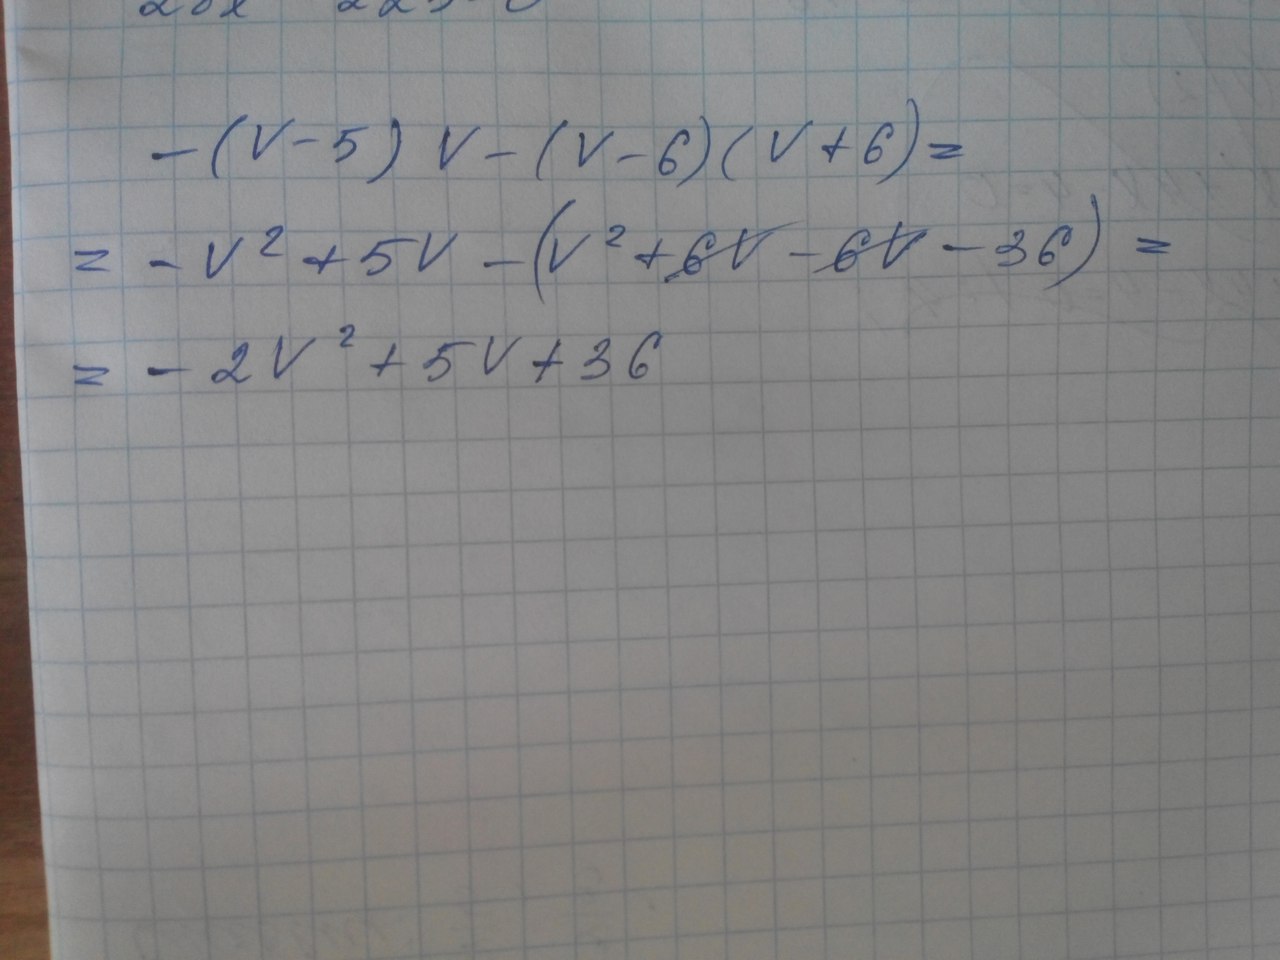 -(V-5)V-(V-6)(V+6)=
= -V²+5V-(V²+6V-6V-36)=
= -2V²+5V+36